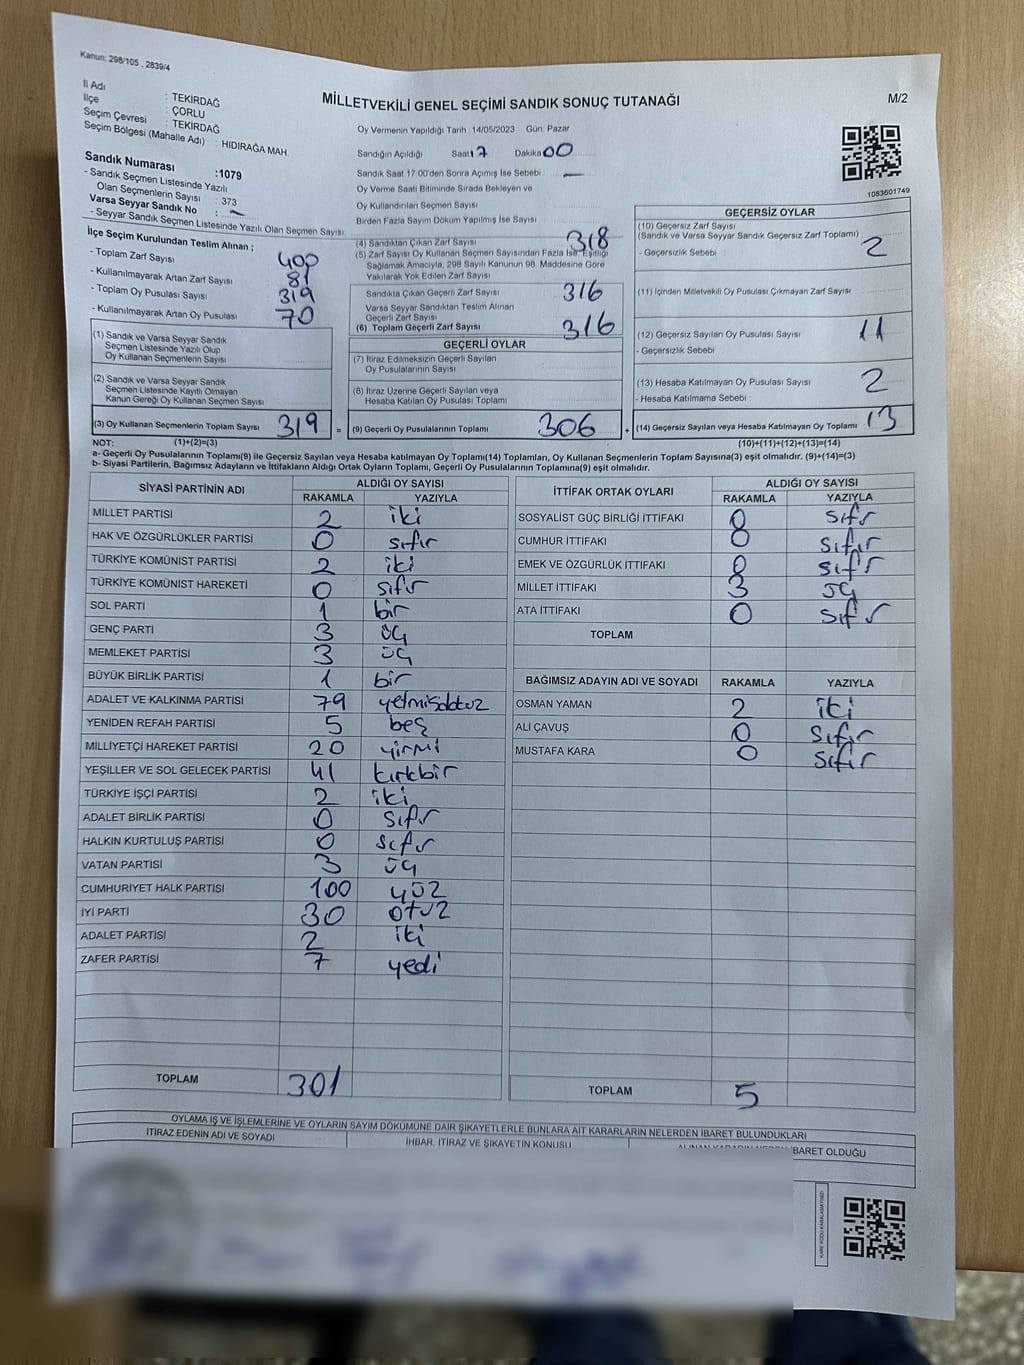 Kanun: 298/105 , 2839/4
İl Adı : TEKİRDAĞ
İlçe : ÇORLU
Seçim Çevresi : TEKİRDAĞ
Seçim Bölgesi (Mahalle Adı) : HIDIRAĞA MAH
MİLLETVEKİLİ GENEL SEÇİMİ SANDIK SONUÇ TUTANAĞI
M/2
Oy Vermenin Yapıldığı Tarih 14/05/2023 Gün: Pazar
Sandığın Açıldığı Saat 17 Dakika 00
Sandık Saat 17:00'den Sonra Açımış İse Sebebi —
Oy Verme Saati Bitiminde Sırada Bekleyen ve
Oy Kullandırılan Seçmen Sayısı
Birden Fazla Sayım Döküm Yapılmış İse Sayısı
1083601749
Sandık Numarası :1079
- Sandık Seçmen Listesinde Yazılı
Olan Seçmenlerin Sayısı : 373
Varsa Seyyar Sandık No : —
- Seyyar Sandık Seçmen Listesinde Yazılı Olan Seçmen Sayısı
İlçe Seçim Kurulundan Teslim Alınan ;
- Toplam Zarf Sayısı 400
- Kullanılmayarak Artan Zarf Sayısı 81
- Toplam Oy Pusulası Sayısı 319
- Kullanılmayarak Artan Oy Pusulası 70
(1) Sandık ve Varsa Seyyar Sandık
Seçmen Listesinde Yazılı Olup
Oy Kullanan Seçmenlerin Sayısı
(2) Sandık ve Varsa Seyyar Sandık
Seçmen Listesinde Kayıtlı Olmayan
Kanun Gereği Oy Kullanan Seçmen Sayısı
(3) Oy Kullanan Seçmenlerin Toplam Sayısı 319
(4) Sandıktan Çıkan Zarf Sayısı 318
(5) Zarf Sayısı Oy Kullanan Seçmen Sayısından Fazla İse, Eşitliği
Sağlamak Amacıyla, 298 Sayılı Kanunun 98. Maddesine Göre
Yakılarak Yok Edilen Zarf Sayısı
Sandıkta Çıkan Geçerli Zarf Sayısı 316
Varsa Seyyar Sandıktan Teslim Alınan
Geçerli Zarf Sayısı
(6) Toplam Geçerli Zarf Sayısı 316
GEÇERLİ OYLAR
(7) İtiraz Edilmeksizin Geçerli Sayılan
Oy Pusulalarının Sayısı
(8) İtiraz Üzerine Geçerli Sayılan veya
Hesaba Katılan Oy Pusulası Toplamı
= (9) Geçerli Oy Pusulalarının Toplamı 306 +
GEÇERSİZ OYLAR
(10) Geçersiz Zarf Sayısı
(Sandık ve Varsa Seyyar Sandık Geçersiz Zarf Toplamı) 2
- Geçersizlik Sebebi :
(11) İçinden Milletvekili Oy Pusulası Çıkmayan Zarf Sayısı
(12) Geçersiz Sayılan Oy Pusulası Sayısı 11
- Geçersizlik Sebebi
(13) Hesaba Katılmayan Oy Pusulası Sayısı 2
- Hesaba Katılmama Sebebi :
(14) Geçersiz Sayılan veya Hesaba Katılmayan Oy Toplamı 13
NOT: (1)+(2)=(3) (10)+(11)+(12)+(13)=(14)
a- Geçerli Oy Pusulalarının Toplamı(9) ile Geçersiz Sayılan veya Hesaba Katılmayan Oy Toplamı(14) Toplamları, Oy Kullanan Seçmenlerin Toplam Sayısına(3) eşit olmalıdır. (9)+(14)=(3)
b- Siyasi Partilerin, Bağımsız Adayların ve İttifakların Aldığı Ortak Oyların Toplamı, Geçerli Oy Pusulalarının Toplamına(9) eşit olmalıdır.
SİYASİ PARTİNİN ADI ALDIĞI OY SAYISI
RAKAMLA YAZIYLA
MİLLET PARTİSİ 2 iki
HAK VE ÖZGÜRLÜKLER PARTİSİ 0 sıfır
TÜRKİYE KOMÜNİST PARTİSİ 2 iki
TÜRKİYE KOMÜNİST HAREKETİ 0 sıfır
SOL PARTİ 1 bir
GENÇ PARTİ 3 üç
MEMLEKET PARTİSİ 3 üç
BÜYÜK BİRLİK PARTİSİ 1 bir
ADALET VE KALKINMA PARTİSİ 79 yetmişdokuz
YENİDEN REFAH PARTİSİ 5 beş
MİLLİYETÇİ HAREKET PARTİSİ 20 yirmi
YEŞİLLER VE SOL GELECEK PARTİSİ 41 kırkbir
TÜRKİYE İŞÇİ PARTİSİ 2 iki
ADALET BİRLİK PARTİSİ 0 sıfır
HALKIN KURTULUŞ PARTİSİ 0 sıfır
VATAN PARTİSİ 3 üç
CUMHURİYET HALK PARTİSİ 100 yüz
İYİ PARTİ 30 otuz
ADALET PARTİSİ 2 iki
ZAFER PARTİSİ 7 yedi
TOPLAM 301
İTTİFAK ORTAK OYLARI ALDIĞI OY SAYISI
RAKAMLA YAZIYLA
SOSYALİST GÜÇ BİRLİĞİ İTTİFAKI 0 sıfır
CUMHUR İTTİFAKI 0 sıfır
EMEK VE ÖZGÜRLÜK İTTİFAKI 0 sıfır
MİLLET İTTİFAKI 3 üç
ATA İTTİFAKI 0 sıfır
TOPLAM
BAĞIMSIZ ADAYIN ADI VE SOYADI RAKAMLA YAZIYLA
OSMAN YAMAN 2 iki
ALİ ÇAVUŞ 0 sıfır
MUSTAFA KARA 0 sıfır
TOPLAM 5
OYLAMA İŞ VE İŞLEMLERİNE VE OYLARIN SAYIM DÖKÜMÜNE DAİR ŞİKAYETLERLE BUNLARA AİT KARARLARIN NELERDEN İBARET BULUNDUKLARI
İTİRAZ EDENİN ADI VE SOYADI İHBAR, İTİRAZ VE ŞİKAYETİN KONUSU ALINAN KARARIN NEDEN İBARET OLDUĞU
KARE KODU KARALAMAYINIZ!